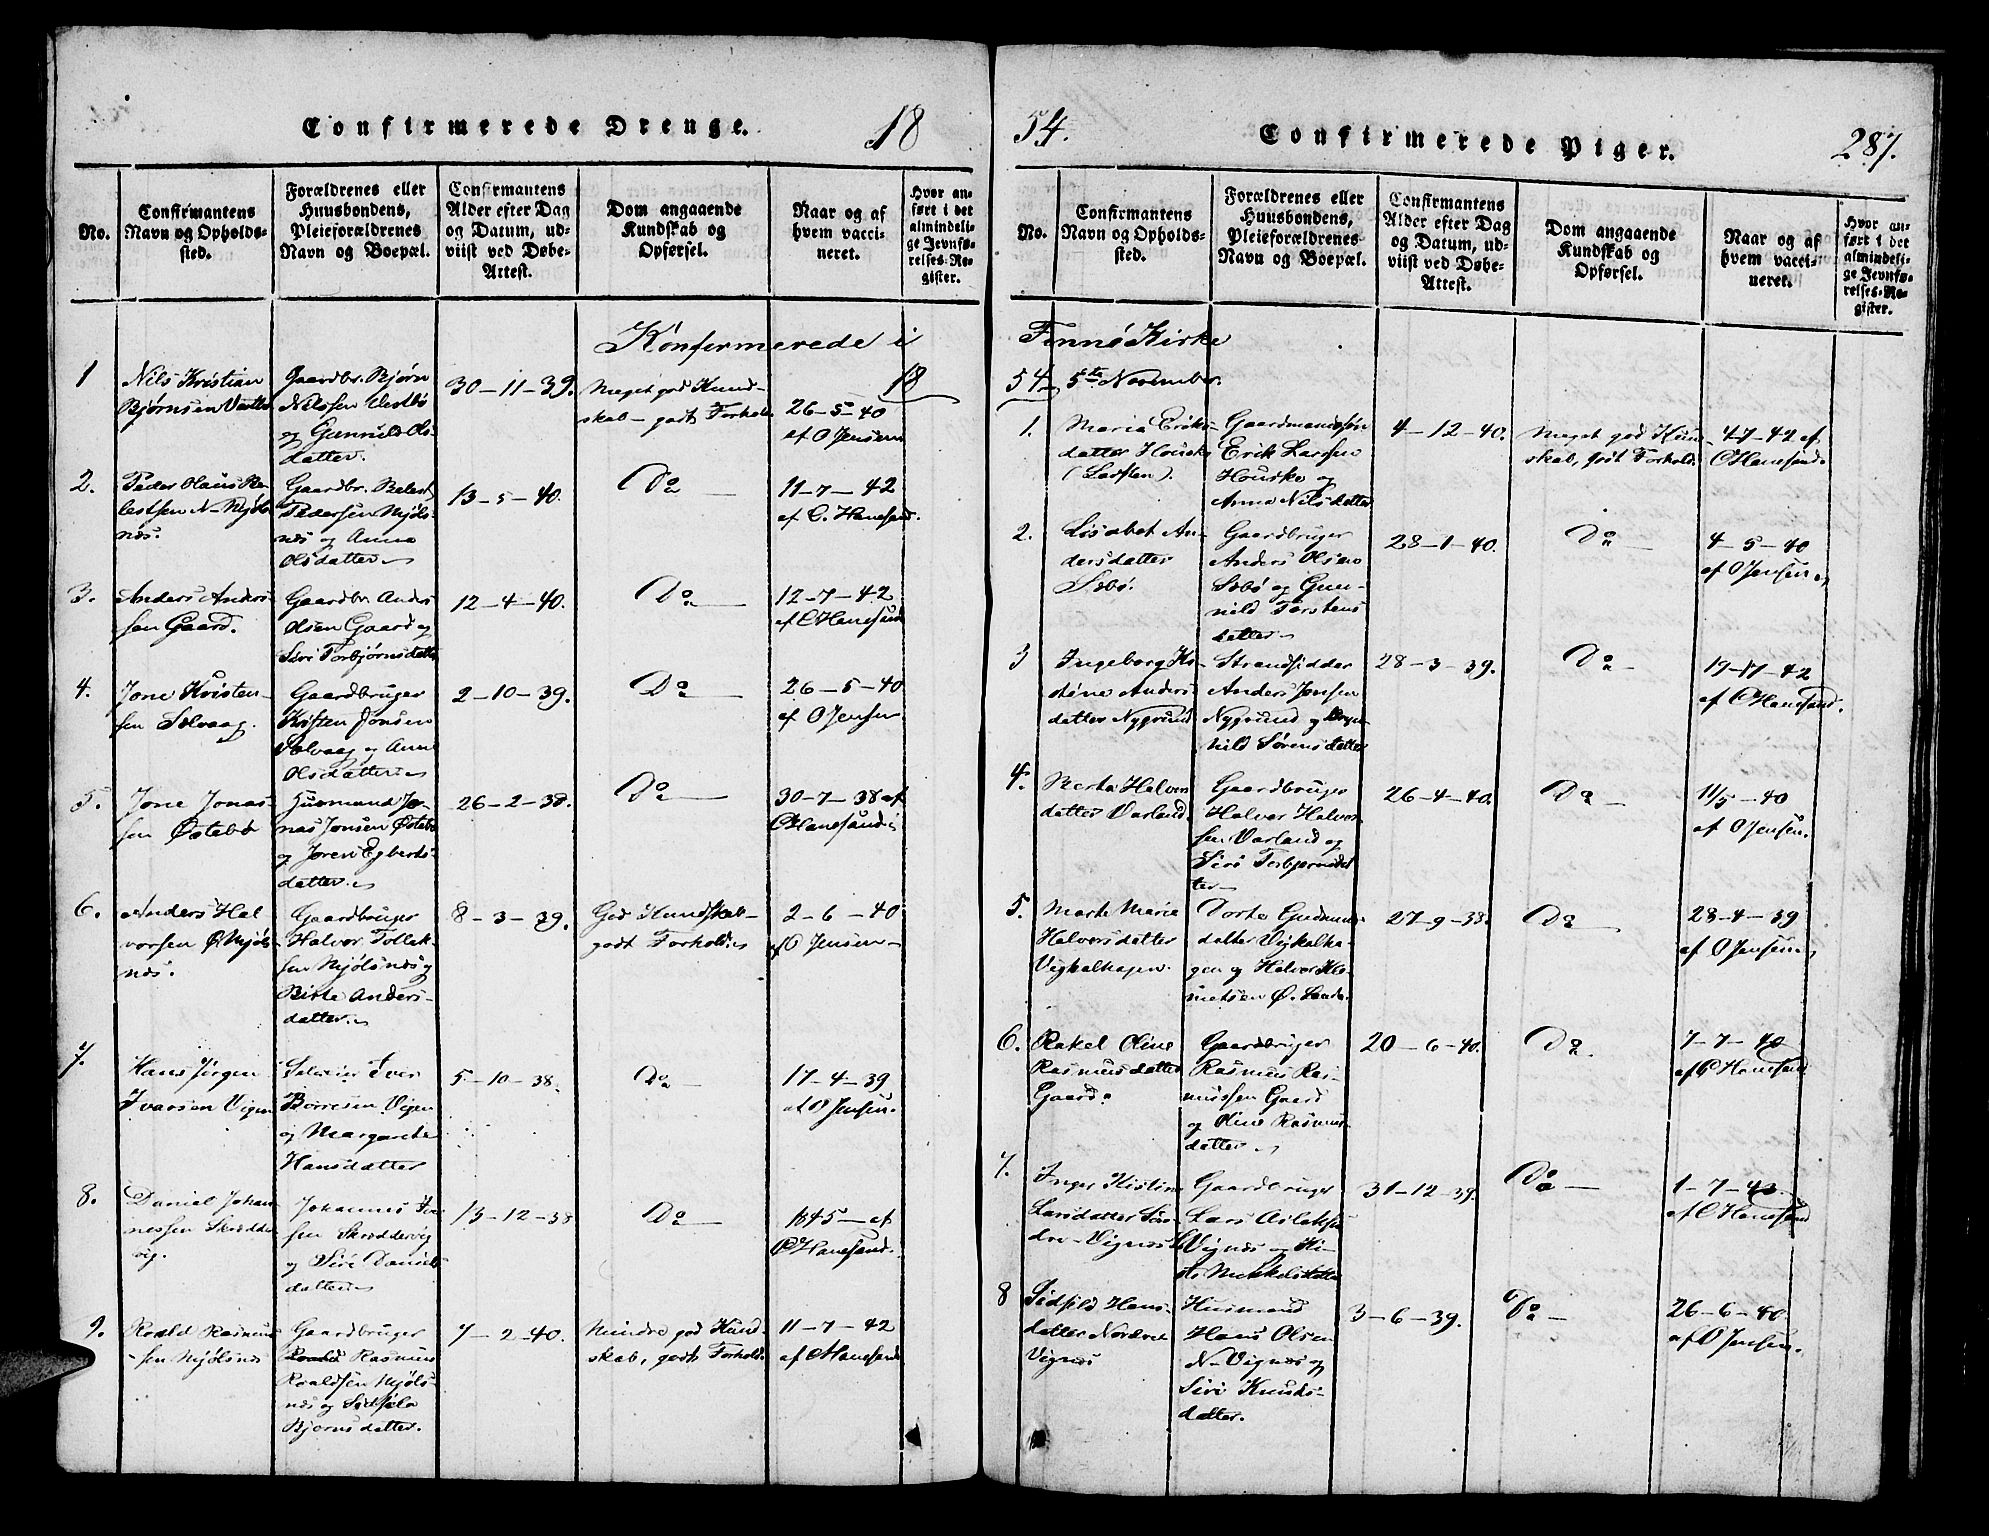 Confirmerede Drenge.
18
No.
Confirmantens
Navn og Opholds-
sted.
Forældrenes eller
Huusbondens,
Pleieforældrenes
Navn og Boepæl.
Confirmantens
Alder efter Dag
og Datum, ud-
viist ved Døbe-
Attest.
Dom angaaende
Kundskab og
Opførsel.
Naar og af
hvem vacci-
neret.
Hvor an-
ført i det
almindeli-
ge Jevnfø-
relses-Re-
gister.
Konfirmerede i
18
1
Nils Kristian
Bjørnsen Vestbø
Gaardbr. Bjørn
Nilssen Vestbø
og Gunnild Ols-
datter.
30-11-39.
Meget god Kund-
skab - godt Forhold
26-5-40
af O Jensen
2.
Peder Olaus Be-
lestsen N-Mjøls-
næs.
Gaardbr. Belest
Pedersen Mjøls-
næs og Anna
Olsdatter
13-5-40.
Do
11-7-42
af C. Hanesand.
3.
Anders Anders-
sen Gaard.
Gaardbr Anders
Olsen Gaard og
Siri Torbjørnsdatter
12-4-40.
Do
12-7-42
af C Hanesand
4.
Jone Kristen-
sen Selvaag.
Gaardbruger
Kristen Jonsen
Selvaag og Anne
Olsdatter
2-10-39.
Do
26-5-40
af O Jensen
5.
Jone Jonas-
sen Østebø
Husmand Jo-
nas Jonsen Østebø
og Joren Egberts-
datter.
26-2-38.
Do
30-7-38 af
C Hanesand
6.
Anders Hal
vorsen Ø Mjøls
næs.
Gaardbruger
Halvor Tollak-
sen Mjølsnæs og
Birte Anders-
datter.
8-3-39.
God Kundskab-
godt Forhold.
2-6-40
af O Jensen
7.
Hans Jørgen
Ivarsen Vigen
Iver
Børresen Vigen
og Margarete
Hansdatter
5-10-38.
Do
17-4-39
af O Jensen.
8.
Daniel Johan
nessen Skredder
vig.
Johannes
sen Skreddervig
og Siri Daniels
datter
13-12-38
Do
1845- af
C Hanesand.
9.
Roald Rasmus
-sen Mjølsnæs
Gaardbruger
Rasmus
Roaldsen Mjøls-
næs og Sidsela
Bjørnsdatter.
7-2-40.
Mindre god Kund-
skab, godt Forhold.
11-7-42
af C Hanesand
54.
Confirmerede Piger.
287.
No.
Confirmantens
Navn og Opholds-
sted.
Forældrenes eller
Huusbondens,
Pleieforældrenes
Navn og Boepæl.
Confirmantens
Alder efter Dag
og Datum, ud-
viist ved Døbe-
Attest.
Dom angaaende
Kundskab og
Opførsel.
Naar og af
hvem vacci-
neret.
Hvor an-
ført i det
almindeli-
ge Jevnfø-
relses-Re-
gister.
Finnø Kirke
54 5te November.
1.
Maria Eriks-
datter Houske
(Larsten).
Gaardmandssøn
Erik Larsen
Houske og
Anna Nilsdatter
4-12-40.
Meget god Kun-
skab, godt Forhold.
4-7-42 af
C Hanesand.
2.
Lisabet An-
dersdatter
Sebø.
Gaardbruger
Anders Olsen
Sebø og Gun-
nild Torstens
datter
28-1-40.
Do
4-5-40
af O Jensen
3
Ingeborg Ki-
stine Anders
datter Nygrund
Strandsidder
Anders Jensen
Nygrund og
nild Sørensdatter
28-3-39.
Do
17-42
af C Hanesand.
4.
Berta Halvors
datter Varland
Gaardbruger
Halvor Halvor-
sen Varland og
Siri Torbjørnsdat
ter
26-4-40.
Do
11/5-40
af O Jensen.
5.
Marta Marie
Halvorsdatter
Vigkalhagen.
Dorte Gudmunds
datter Vigkalha-
gen og Halvor Kle-
metsen Ø. Lande.
27-9-38.
Do
28-4-39
af O Jensen
6.
Rakel Oline
Rasmusdatter
Gaard.
Gaardbruger
Rasmus Ras-
mussen Gaard
og Oline Rasmus-
datter
20-6-40.
Do.
7-7-40
af C Hanesand
7.
Inger Kistine
Larsdatter Søn-
dre-Vignæs
Gaardbruger
Lars Aslaksen
Vignæs og Ki-
sti Mikkelsdatter
31-12-39.
Do
1-7-43
af C Hanesand
8
Sidsild Hans-
datter Nordre
Vignæs
Husmand
Hans Olsen
N-Vignæs og
Siri Knuds-
datter.
3-6-39.
Do
26-6-40
af O Jensen.